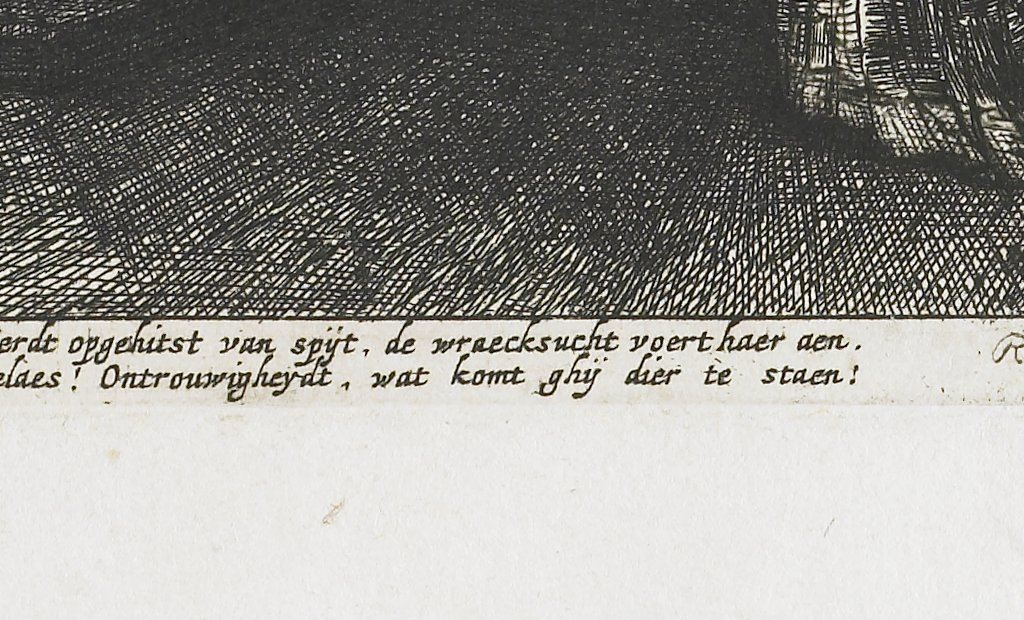 erdt opgehitst van spijt, de wraecksucht voert haer aen.
elaes! Ontrouwigheydt, wat komt ghij dier te staen!
R